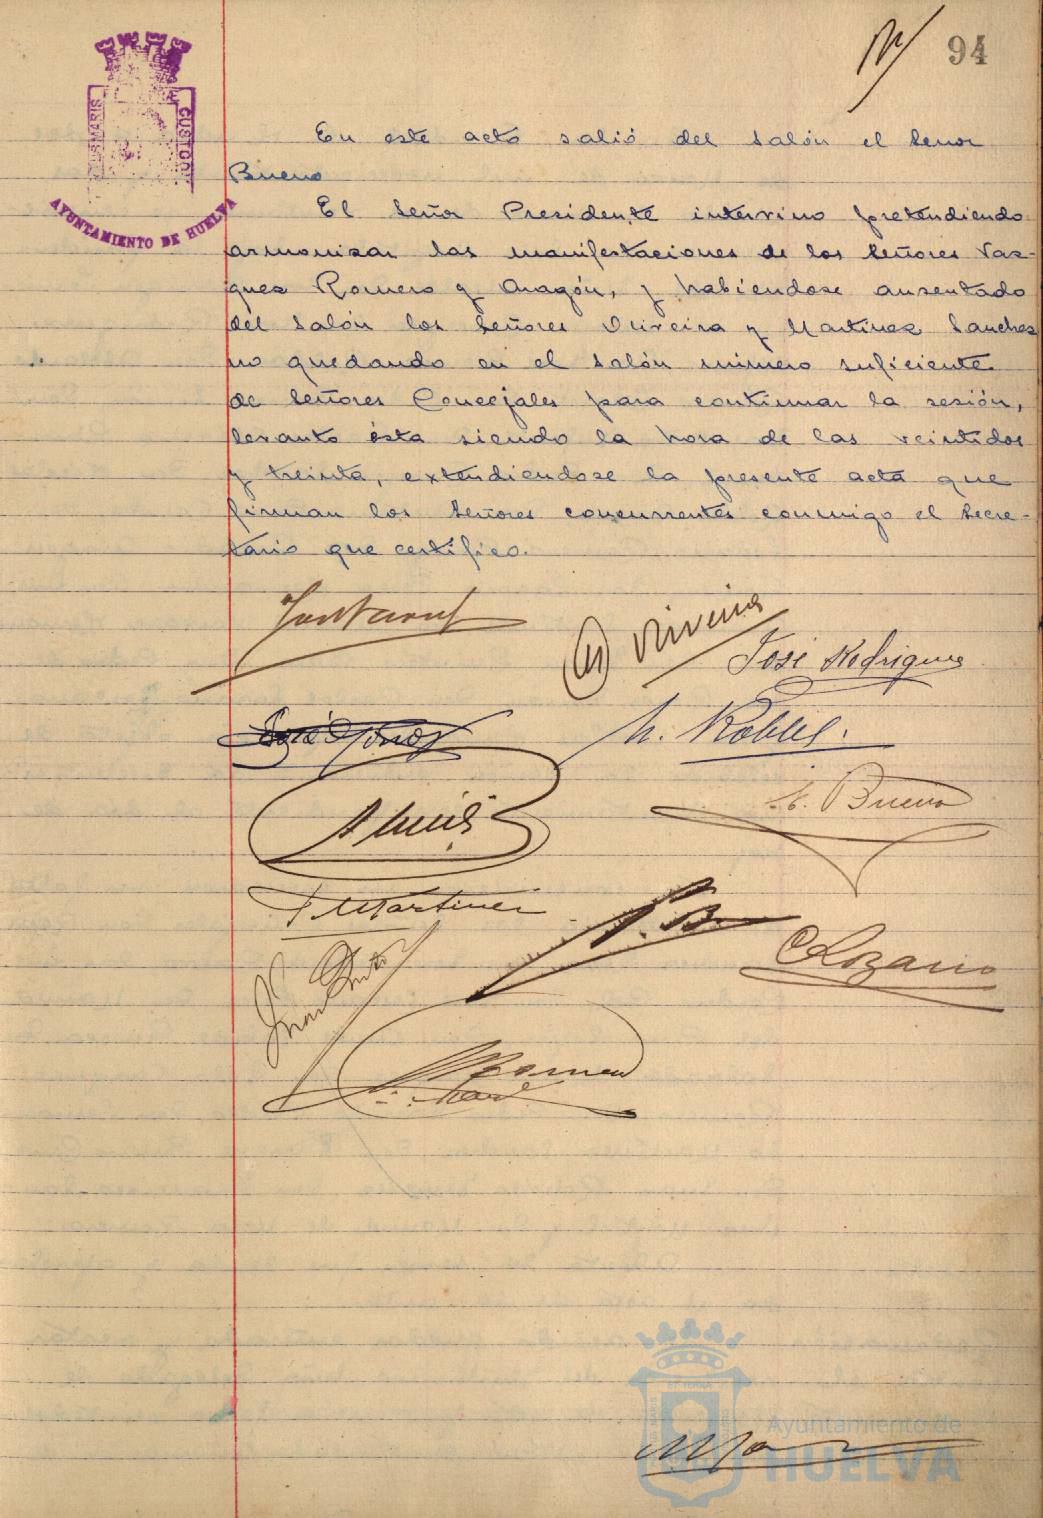 94
PORTUS MARIS
CUSTODIA
AYUNTAMIENTO DE HUELVA
En este acto salió del salón el Señor
Bueno
El Señor Presidente intervino pretendiendo
armonizar las manifestaciones de los Señores Vaz-
quez Romero y Aragón, y habiendose ausentado
del salón los Señores Oliveira y Martinez Sanchez
no quedando en el salón número suficiente
de Señores Concejales para continuar la sesión,
levanto ésta siendo la hora de las veintidos
y treinta, extendiendose la presente acta que
firman los Señores concurrentes conmigo el Secre-
tario que certifico.
Oliveira
José Rodriguez
M. Robles.
Bueno
Martinez
Lozano
Ayuntamiento de
HUELVA